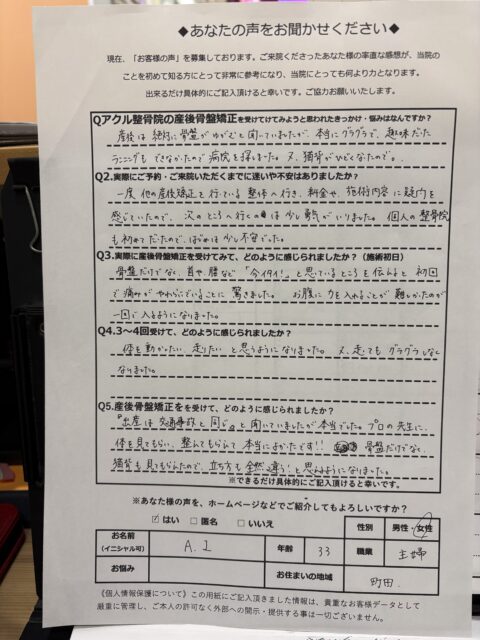 ◆あなたの声をお聞かせください◆
現在、「お客様の声」を募集しております。ご来院くださったあなた様の率直な感想が、当院の
ことを初めて知る方にとって非常に参考になり、当院にとっても何より力となります。
出来るだけ具体的にご記入頂けると幸いです。ご協力お願いいたします。
Qアクル整骨院の産後骨盤矯正を受けてけてみようと思われたきっかけ・悩みはなんですか?
産後は絶対に骨盤がゆがむと聞いていましたが、本当にグラグラで、趣味だった
ランニングも できなかったので 病院を探しました。又、猫背がひどくなったので。
Q2.実際にご予約・ご来院いただくまでに迷いや不安はありましたか?
一度、他の産後矯正を行っている 整体へ行き、料金や、施術内容に疑問を
感じていたので、次のところへ行くのは 少し勇気がいりました。個人の整骨院
も初めてだったので、はじめは 少し不安でした。
Q3.実際に産後骨盤矯正を受けてみて、どのように感じられましたか?(施術初日)
骨盤だけでなく、首や、腰など「今イタイ!」と思っているところを伝えると 初回
で痛みが やわらいでいることに 驚きました。 お腹に力を入れることが 難しかったのが
一回で入るようになりました。
Q4.3~4回受けて、どのように感じられましたか?
体を動かしたい、走りたい と思うようになりました。又、走っても グラグラしなく
なりました。
Q5.産後骨盤矯正をを受けて、どのように感じられましたか?
「出産は 交通事故と同じ。」と聞いていましたが本当でした。プロの先生に、
体を見てもらい、整えてもらえて 本当によかったです!! 骨盤だけでなく、
猫背も見てもらえたので、立ち方も 全然違う! と思えるようになりました。
※できるだけ具体的にご記入頂けると幸いです。
※あなた様の声を、ホームページなどでご紹介してもよろしいですか?
☑ はい □ 匿名 □ いいえ
性別 男性・女性
お名前 (イニシャル可) A.I 年齢 33 職業 主婦
お悩み お住まいの地域 町田.
《個人情報保護について》この用紙にご記入頂きました情報は、貴重なお客様データとして
厳重に管理し、ご本人の許可なく外部への開示・提供する事は一切ございません。